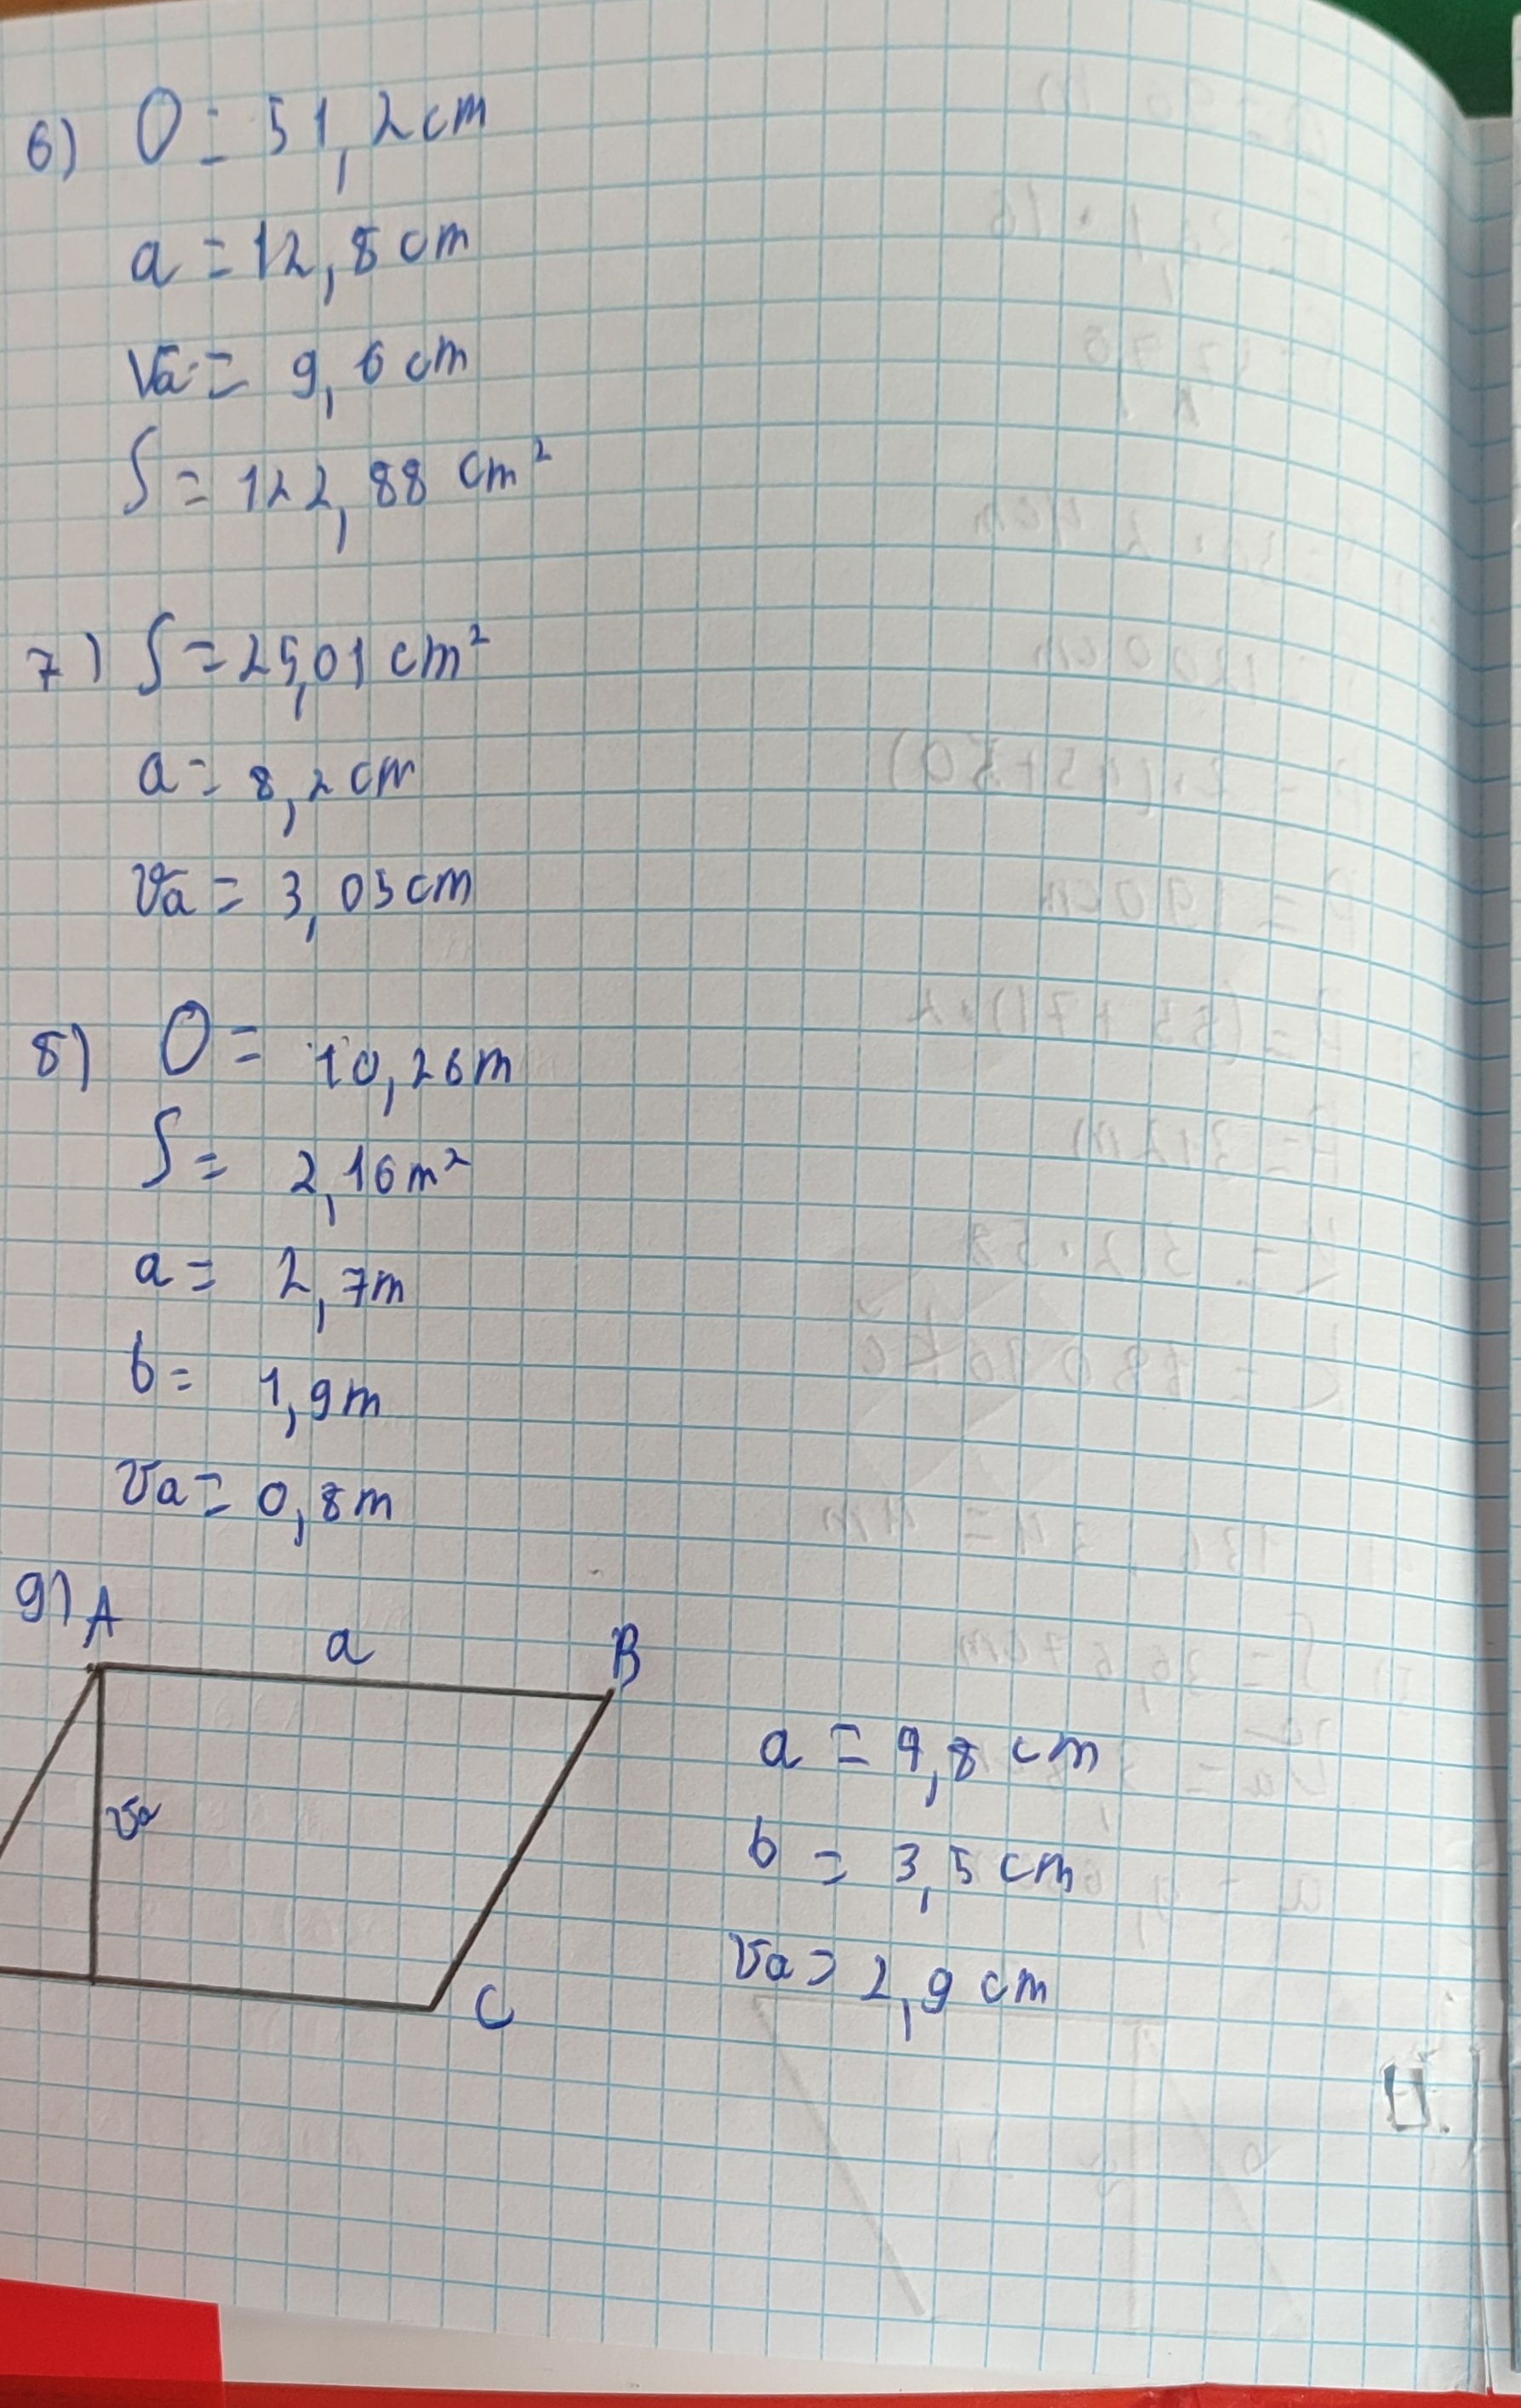 6) O = 51,2 cm
a = 12,8 cm
va = 9,6 cm
S = 122,88 cm²
7) S = 25,01 cm²
a = 8,2 cm
va = 3,05 cm
8) O = 10,26 m
S = 2,16 m²
a = 2,7 m
b = 1,9 m
va = 0,8 m
9) A
a
B
va
C
a = 9,8 cm
b = 3,5 cm
va = 2,9 cm